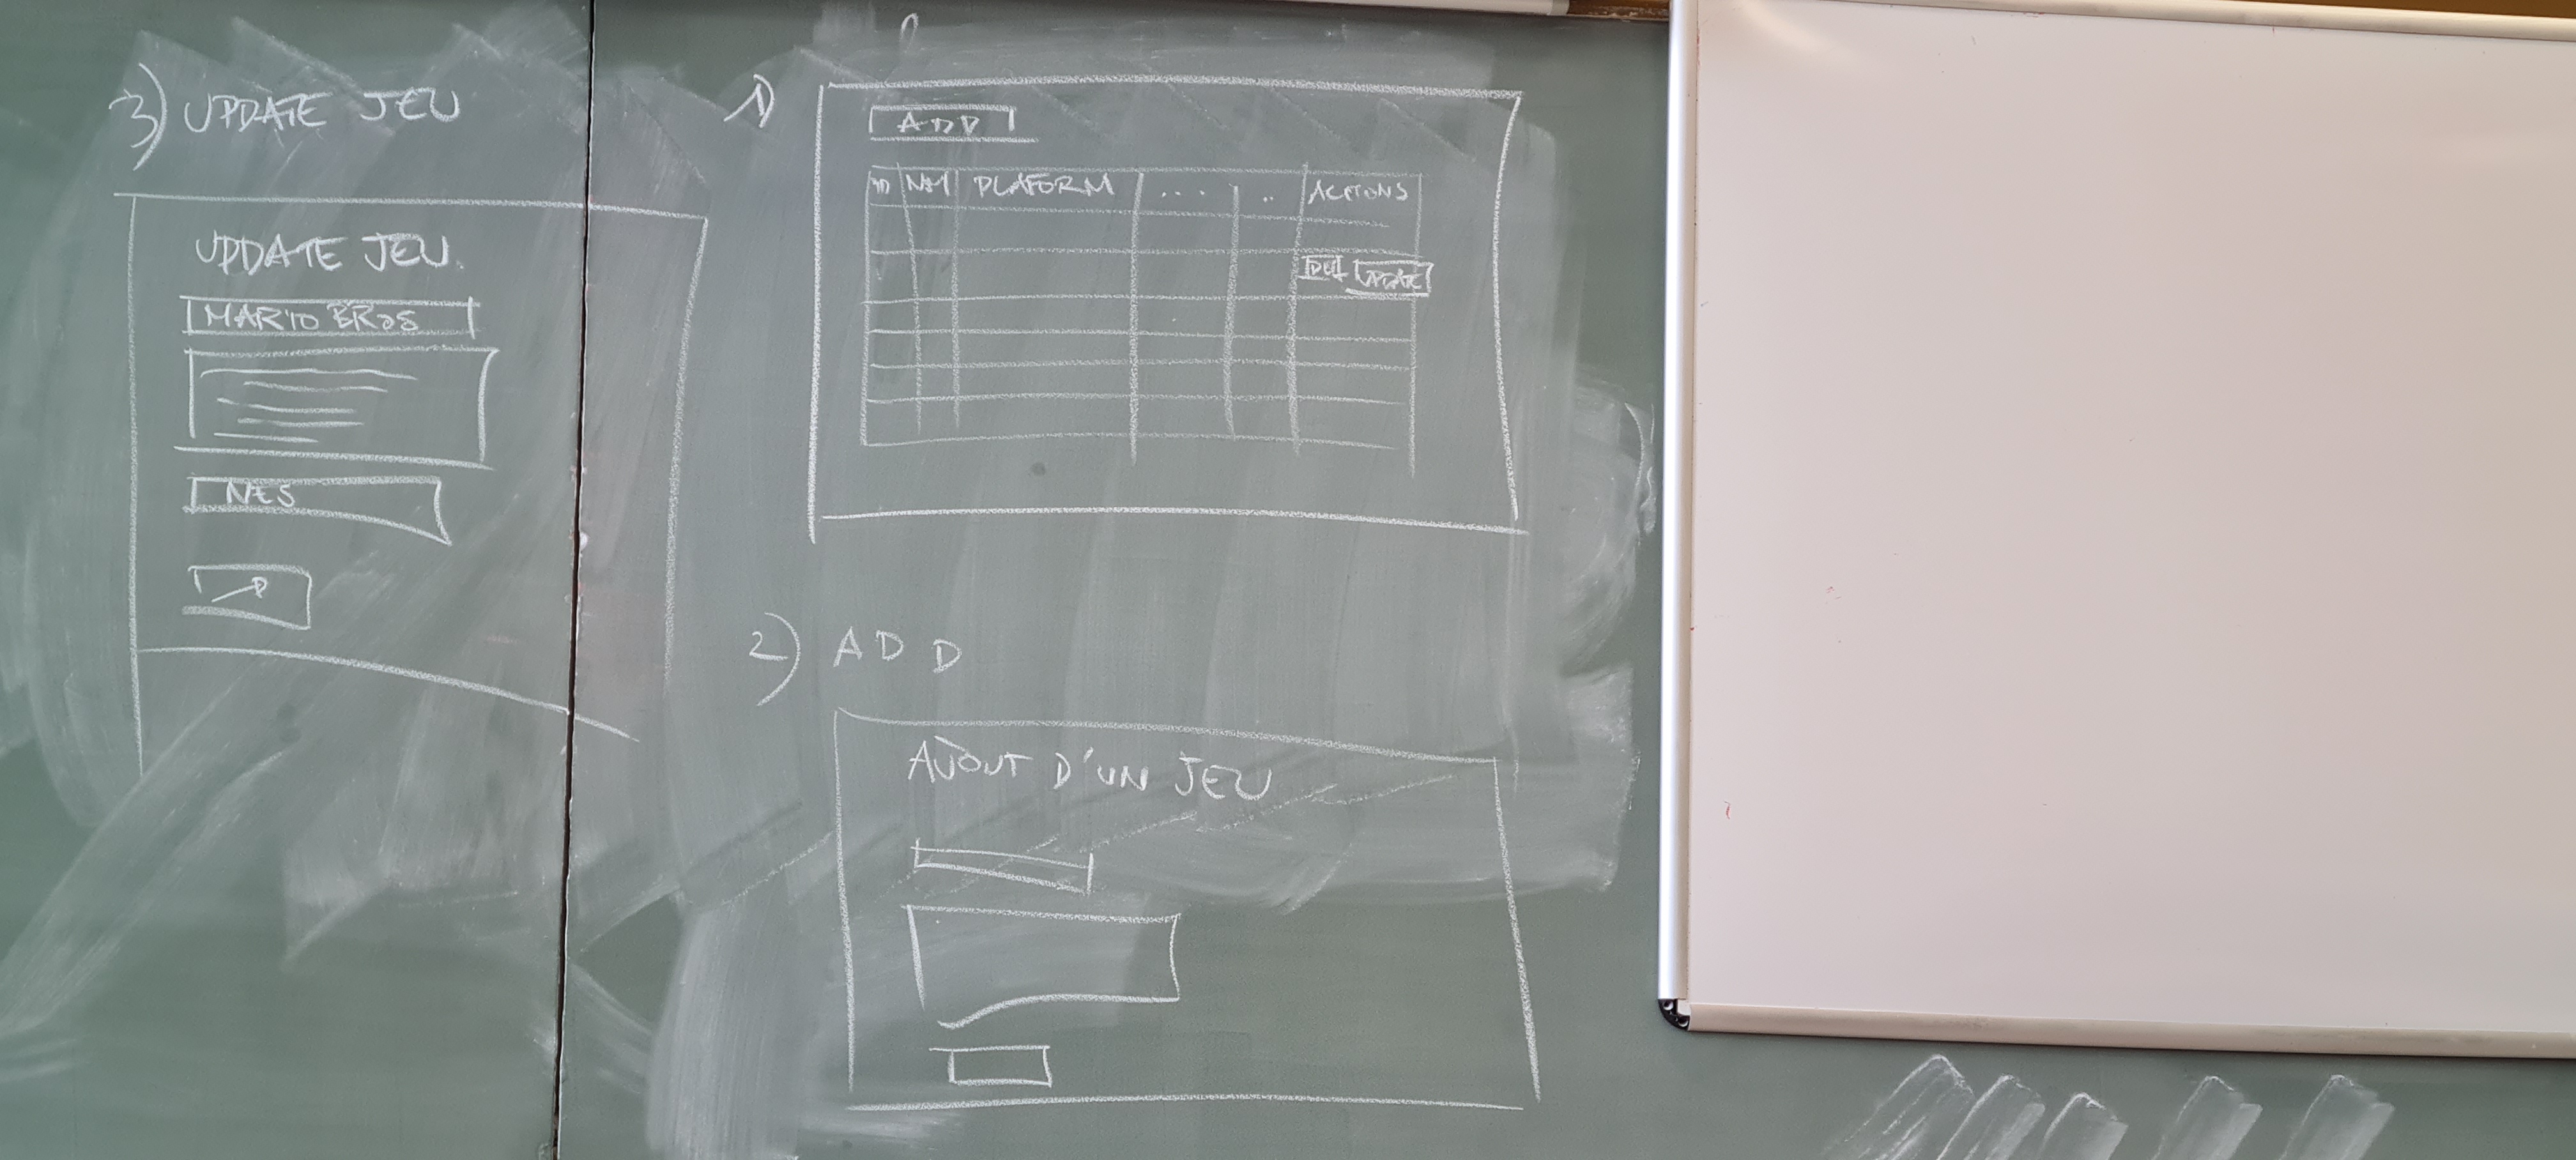 3) UPDATE JEU
UPDATE JEU
MARIO BROS
NES
1)
ADD
ID NOM PLAFORM .... .. ACTIONS
DEL UPDATE
2) ADD
AJOUT D'UN JEU